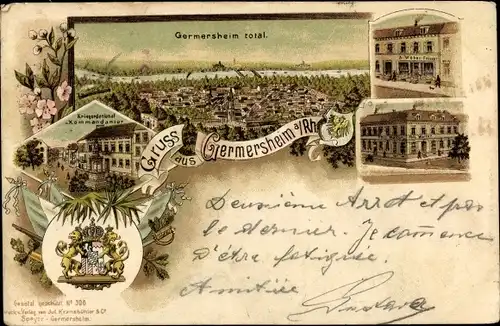 Germersheim total.
Kriegerdenkmal
u. Kommandantur
Gruss
aus
Germersheim a/Rh.
Deuxième Arret et pas
le dernier. Je commence
d'être fatiguée.
Amitiés
Gesetzl. geschützt No 306
Verlag von Jul. Kranzbühler & Cie
Speyer - Germersheim.